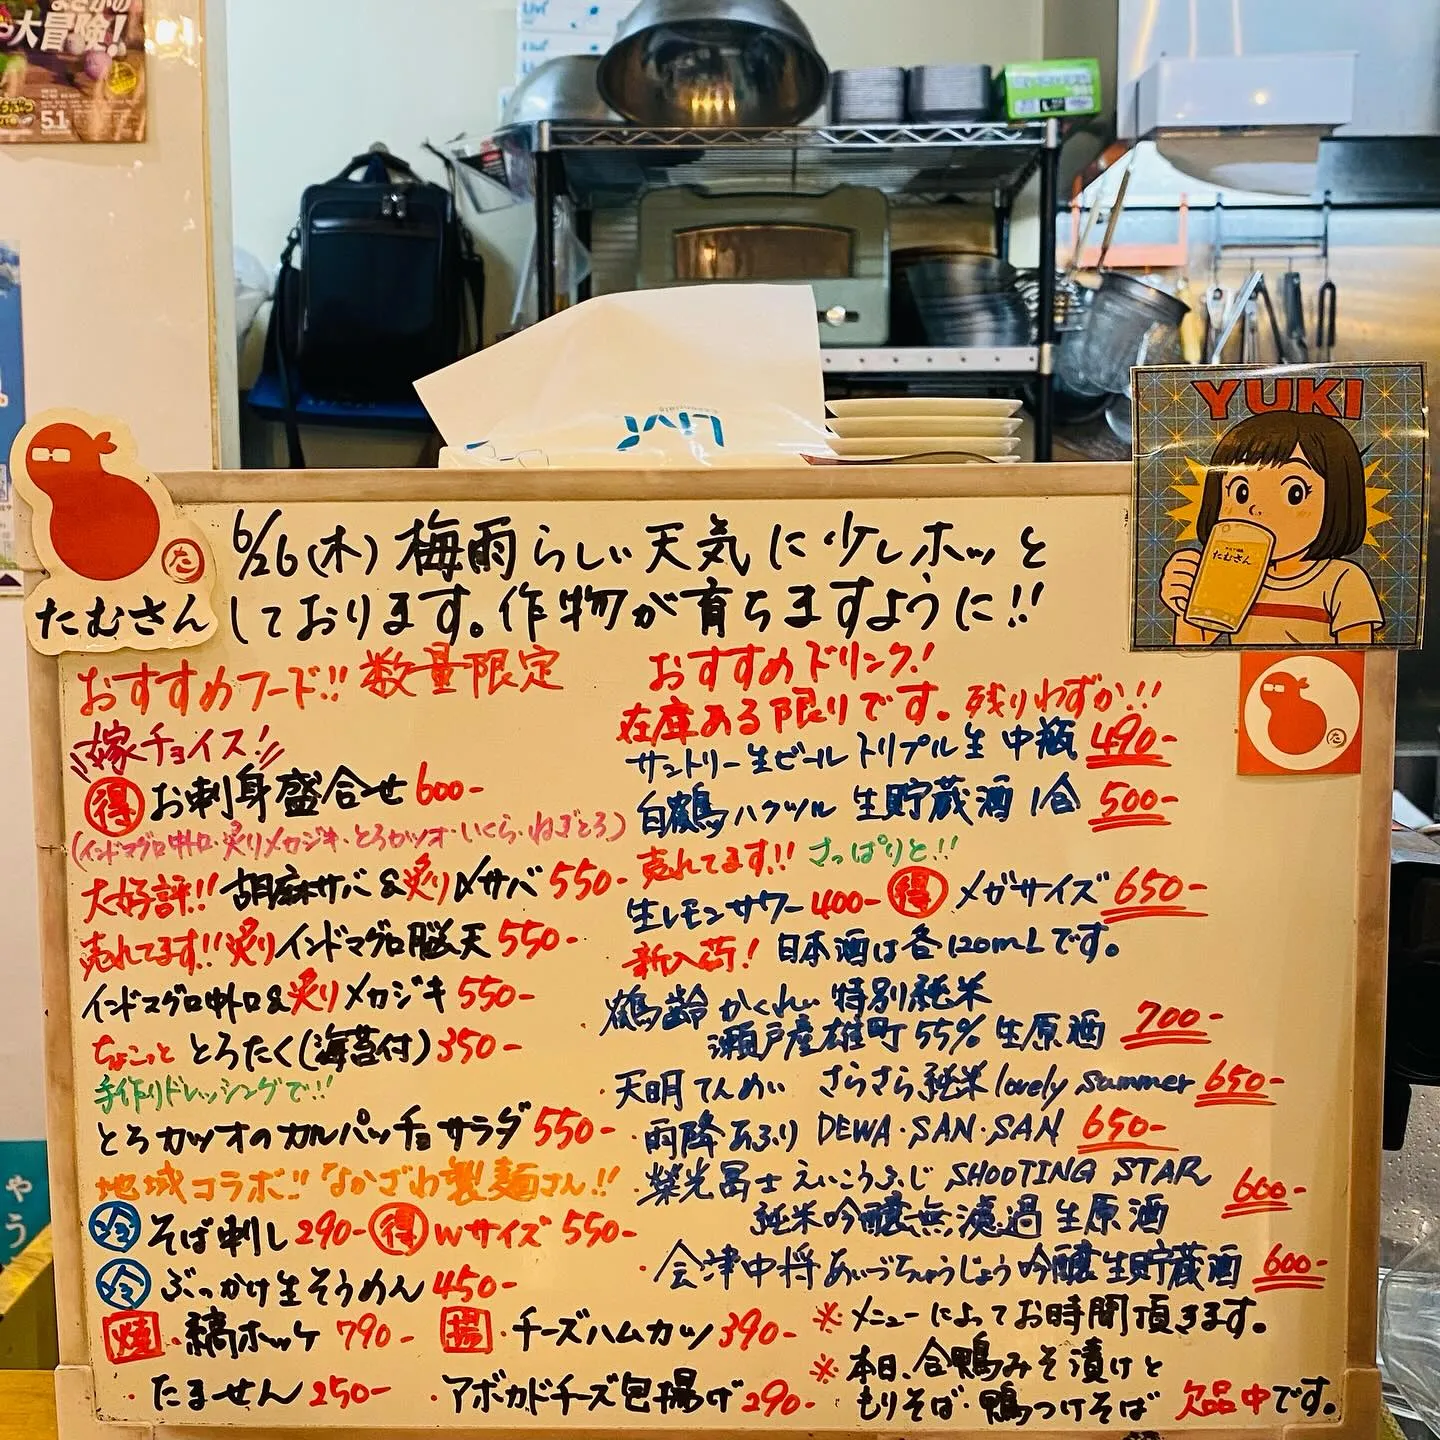 大冒険!
5.1
Livi
YUKI
たむさん
た
たむさん
6/26(木)梅雨らしい天気に少しホッと
しております。作物が育ちますように!!
おすすめフード!!数量限定
嫁チョイス!
得 お刺身盛合せ 600-
(インドマグロ中トロ・炙りメカジキ・とろカツオ・いくら・ねぎとろ)
大好評!! 胡麻サバ&炙り〆サバ 550-
売れてます!!炙りインドマグロ脳天 550-
インドマグロ中トロ&炙りメカジキ 550-
ちょこっと とろたく(海苔付)350-
手作りドレッシングで!!
とろカツオのカルパッチョサラダ 550-
地域コラボ!!なかざわ製麺さん!!
冷 そば刺し 290- 得 Wサイズ 550-
冷 ぶっかけ生そうめん 450-
焼・縞ホッケ 790- 揚・チーズハムカツ 390-
・たません 250- ・アボカドチーズ包揚げ 290-
おすすめドリンク!
在庫ある限りです。残りわずか!!
サントリー生ビール トリプル生 中瓶 490-
白鶴ハクツル 生貯蔵酒 1合 500-
売れてます!! さっぱりと!!
生レモンサワー 400- 得 メガサイズ 650-
新入荷! 日本酒は各120mLです。
・鶴齢 かくれい 特別純米
瀬戸産雄町 55% 生原酒 700-
・天明 てんめい さらさら純米 lovely summer 650-
・雨降 あふり DEWA・SAN・SAN 650-
・榮光冨士 えいこうふじ SHOOTING STAR
純米吟醸無濾過生原酒 600-
・会津中将 あいづちゅうじょう 吟醸生貯蔵酒 600-
※メニューによってお時間頂きます。
※本日、合鴨みそ漬けと
もりそば・鴨つけそば 欠品中です。